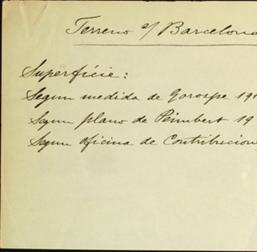 Terreno s/ Barcelona
Superficie:
Segun medida de Gorospe 19
Segun plano de Peimbert 19
Segun oficina de Contribucion